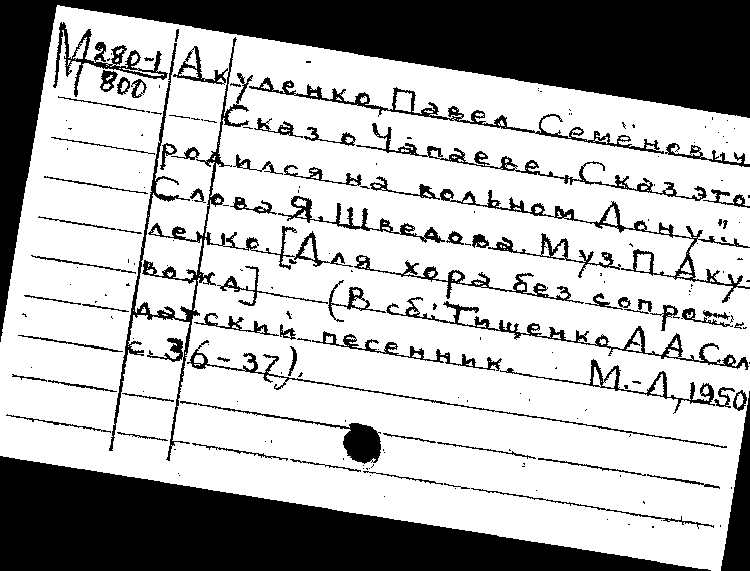 М 280-1
800
Акуленко, Павел Семёнович
Сказ о Чапаеве. „Сказ это
родился на вольном Дону..."
Слова Я. Шведова. Муз. П. Аку-
ленко. [Для хора без сопро-
вожд.] (В сб.: Тищенко, А.А. Сол
датский песенник. М.-Л., 1950
с. 36-37).